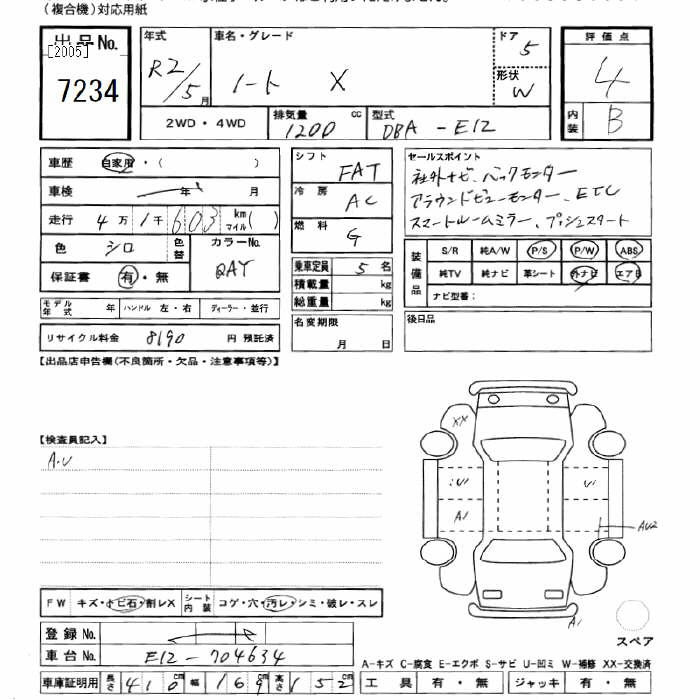 (複合機)対応用紙
出品No.
[2005]
7234
年式
R2/5月
車名・グレード
ノート X
ドア
5
形状
W
評価点
4
内装
B
2WD・4WD
排気量
1200
cc
型式
DBA-E12
車歴
自家用・( )
車検
年 月
走行
4万1千603
km
マイル
( )
色
シロ
色替
カラーNo.
QAY
保証書
有・無
モデル年式
年
ハンドル 左・右
ディーラー・並行
リサイクル料金
8190
円 預託済
シフト
FAT
冷房
AC
燃料
G
乗車定員
5名
積載量
kg
総重量
kg
名変期限
月 日
セールスポイント
社外ナビ、バックモニター
アラウンドビューモニター、ETC
スマートルームミラー、プッシュスタート
装備品
S/R 純A/W P/S P/W ABS
純TV 純ナビ 革シート 外ナビ エアB
ナビ型番:
後日品
【出品店申告欄(不良箇所・欠品・注意事項等)】
【検査員記入】
A.U
XX
A1
AU2
A1
スペア
FW
キズ・トビ石・割レX
シート内装
コゲ・穴・汚レ・シミ・破レ・スレ
登録No.
車台No.
E12-704634
車庫証明用
長さ
410
幅
169
高さ
152
A-キズ C-腐食 E-エクボ S-サビ U-凹ミ W-補修 XX-交換済
工具
有・無
ジャッキ
有・無